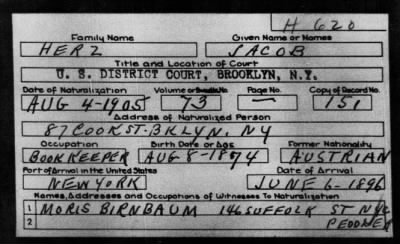 H 620
Family Name Given Name or Names
HERZ JACOB
Title and Location of Court
U. S. DISTRICT COURT, BROOKLYN, N.Y.
Date of Naturalization Volume or Bundle No. Page No. Copy of Record No.
AUG 4-1905 73 — 151
Address of Naturalized Person
87 COOK ST. BKLYN. NY
Occupation Birth Date or Age Former Nationality
BOOKKEEPER AUG 8-1874 AUSTRIAN
Port of Arrival in the United States Date of Arrival
NEW YORK JUNE 6-1896
Names, Addresses and Occupations of Witnesses To Naturalization
1 MORIS BIRNBAUM 146 SUFFOLK ST NYC
2 PEDDLER